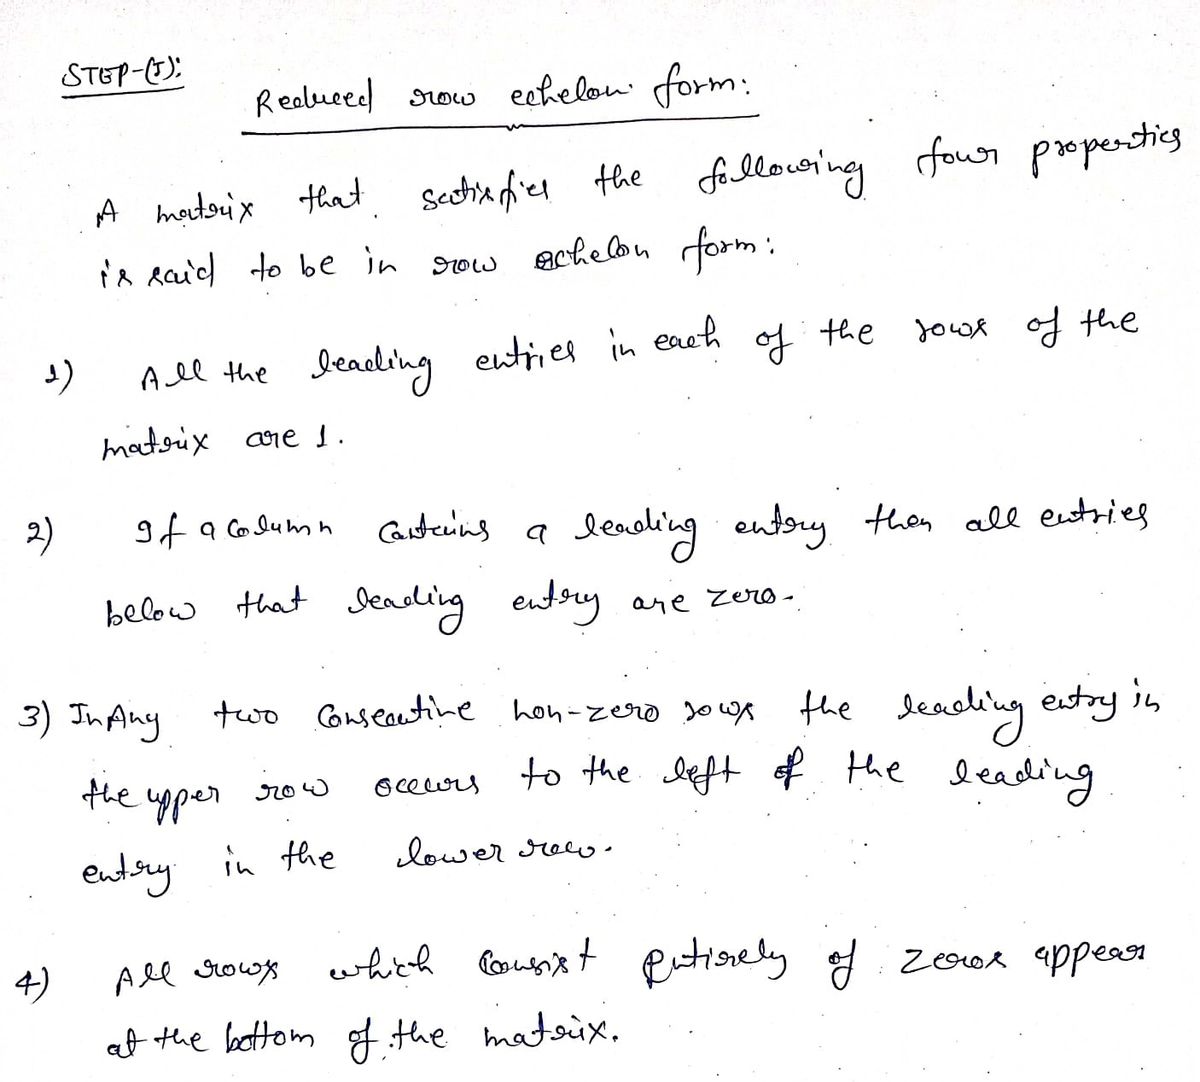 STEP-(I):
Reduced row echelon form:
A matrix that satisfies the following four properties
is said to be in row echelon form:
1) All the leading entries in each of the rows of the
matrix are 1.
2) If a column contains a leading entry then all entries
below that leading entry are zero.
3) In Any two Consecutive non-zero rows the leading entry in
the upper row occurs to the left of the leading
entry in the lower row.
4) All rows which consist entirely of zeros appear
at the bottom of the matrix.